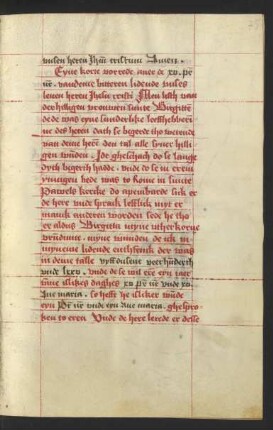 vnsen heren Jhm cristum Amen .
Eyne korte vorrede auer de xv . pr
nr . van deme bitteren lidende vnses
leuen heren Jhesu cristi Men lißt van
der hilligen vrouwen sunte Birgitten
de de was eyn sunderlike leefhebberi
ne des heren dat se begerde tho wetende
van deme heren den tall alle siner hilli
gen wunden . Id gheschach do se lange
dyth begerth hadde . vnde do se in erem
ynnigen bede was to Rome in sunte
Pawels kercke do apenbarde sick er
de here vnde sprack lefflick myt er
manck anderen worden sede he tho
er aldus Birgitta myne vtherkorne
vrundinne . myne wunden de ick in
myneme lidende entfenck der was
in deme talle vyffdusent veerhunderth
vnde lxxv . vnde de se wil eren eyn jaer
lanck islikes daghes xv pr nr vnde xv
Aue maria . so hefft he isliker wunde
eyn Pr nr vnde eyn Aue maria . ghespro
ken to eren Vnde de here lerede er desse